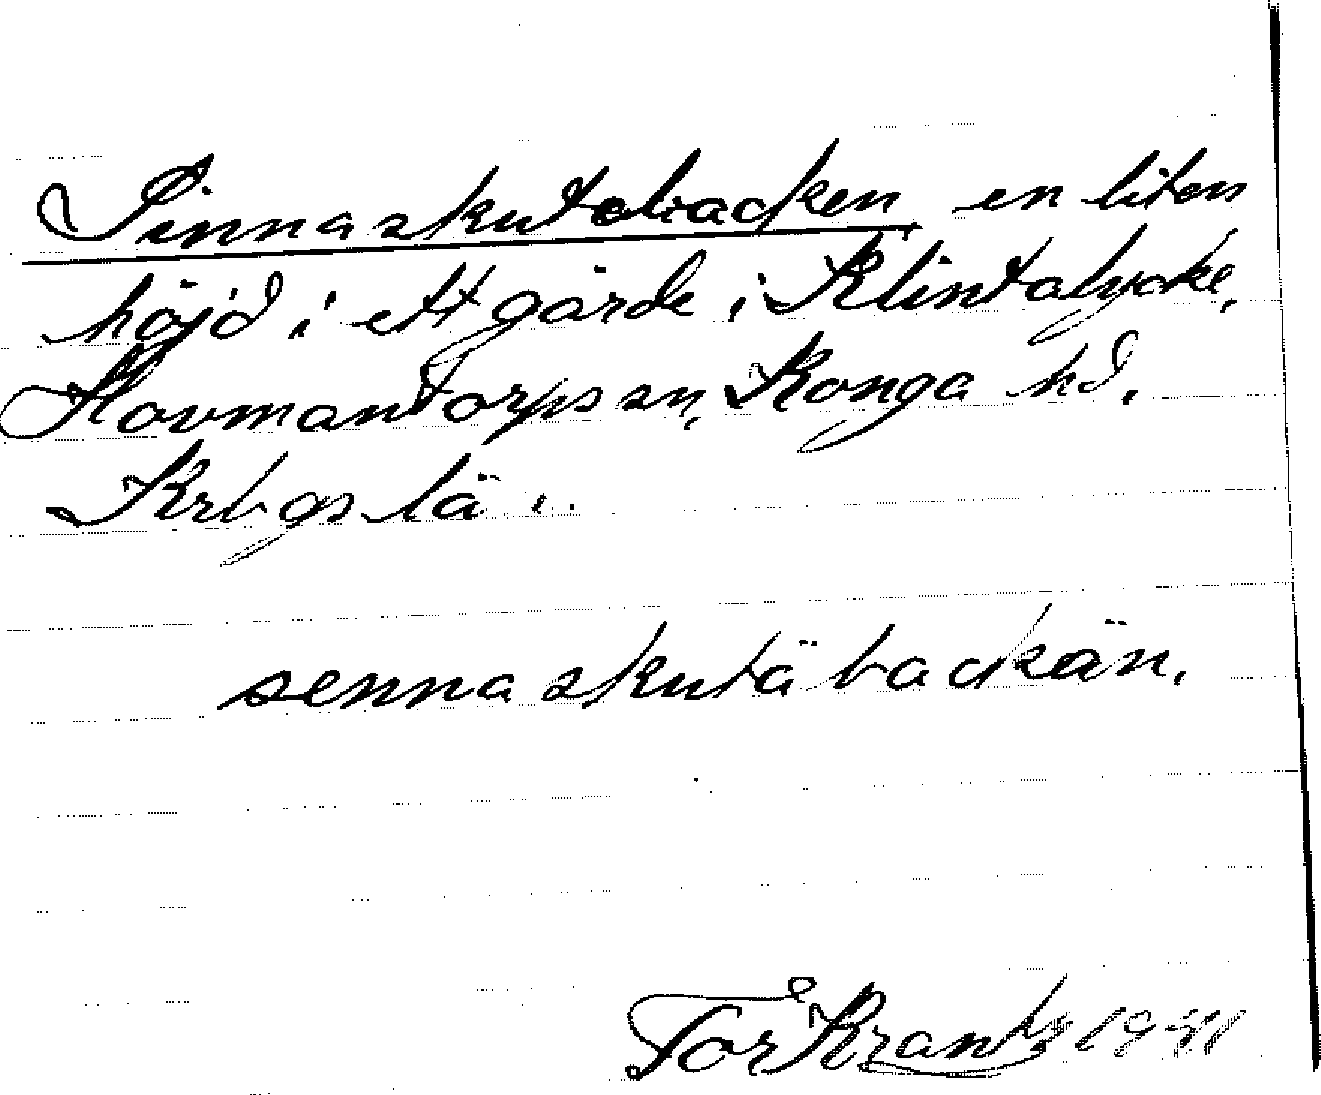 Sinnaskutebacken, en liten
höjd i ett gärde i Klintalycke,
Hovmantorps sn, Konga hd,
Krbgs län.
sennaskutäbackän.
Tor Krantz 1941